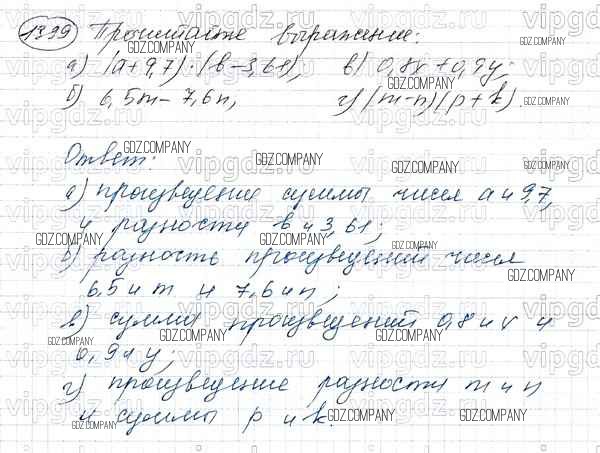 1399 Прочитайте выражение:
а) (a+9,7)·(b-3,61), в) 0,8v+0,9y;
б) 6,5m-7,6n, г) (m-n)(p+k).
Ответ:
а) произведение суммы чисел a и 9,7,
и разности b и 3,61;
б) разность произведений чисел
6,5 и m и 7,6 и n;
в) сумма произведений 0,8 и v и
0,9 и y;
г) произведение разности m и n
и суммы p и k.